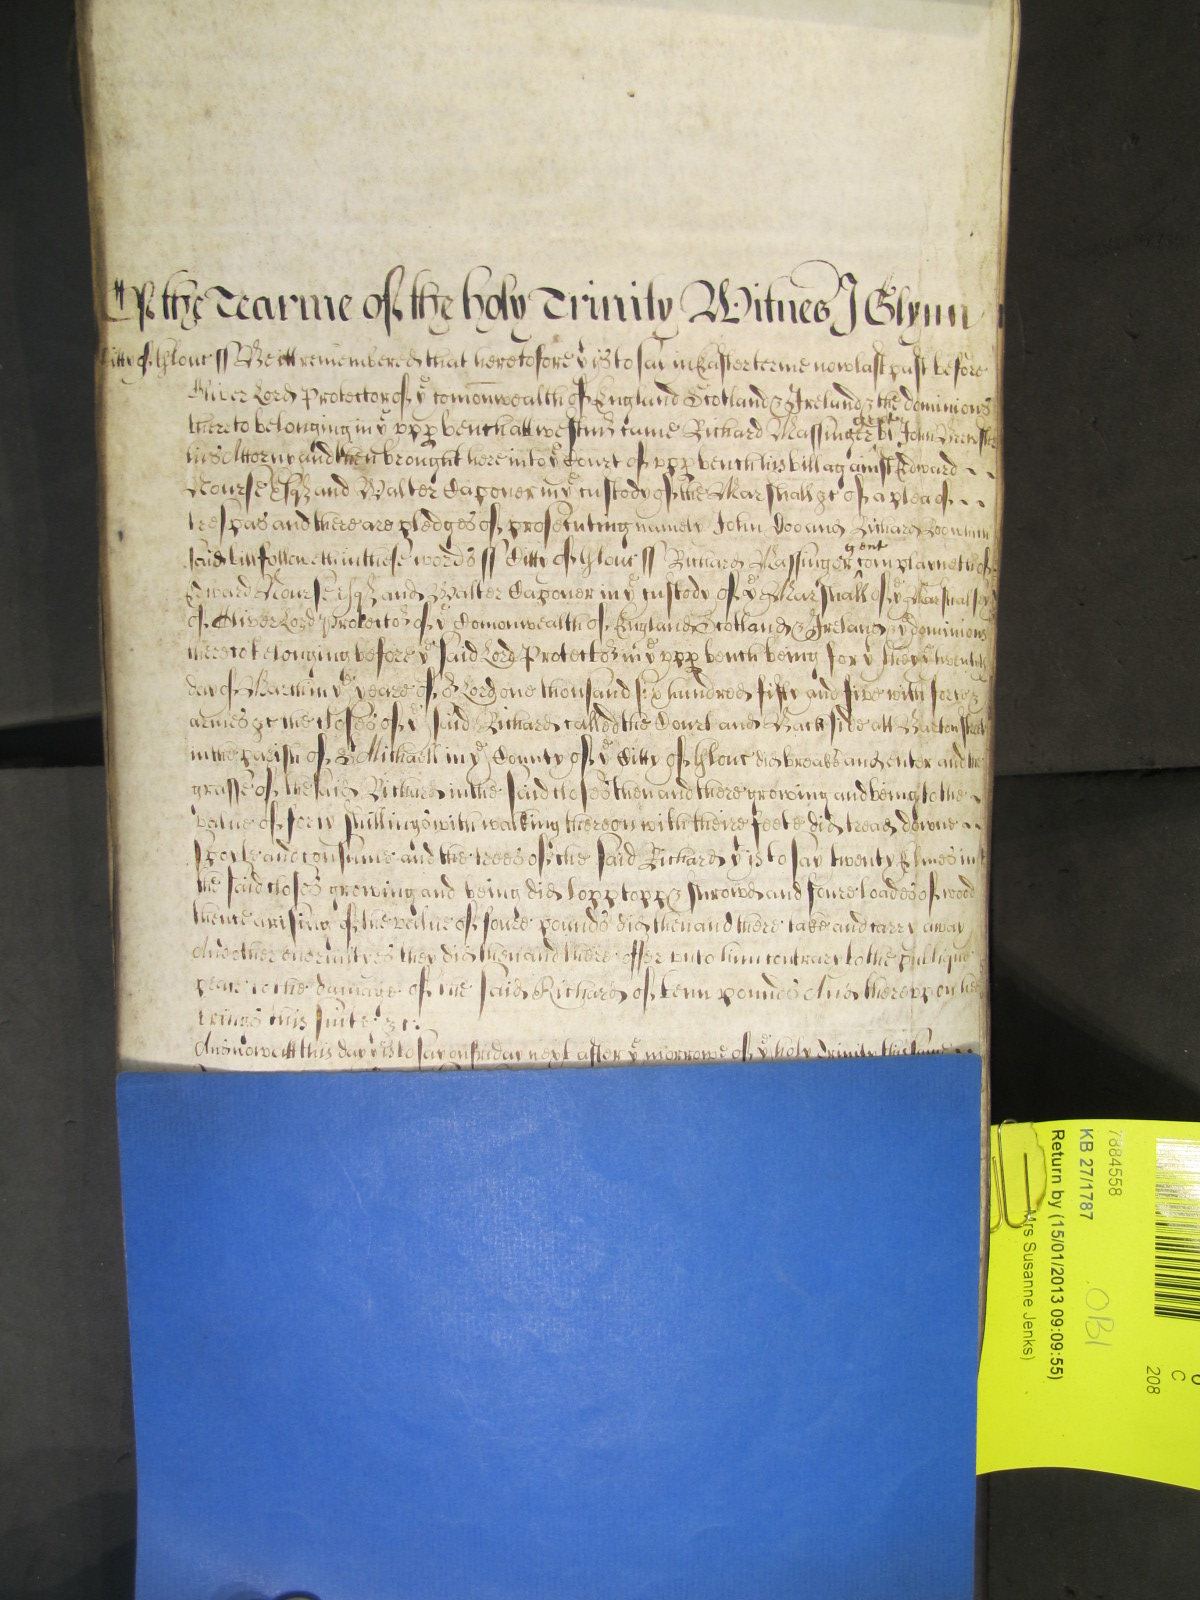 Of the Tearme of the holy Trinity Witnes J Glynn
Citty of Glouc ss Be itt remembered that heretofore yt is to say in Easter terme now last past before
Oliver Lord Protector of ye Comonwealth of England Scotland & Ireland & the dominions
thereto belonging in ye upp bench att Westmr came Richard Massinger gent by John
his Attorny and then brought here into ye Court of upp bench his bill against Edward
Nourse Esqr and Walter Caponer in ye custody of the Marshall &c of a plea of
trespas and there are pledges of prosecuting namely John Doo and Richard Roo which
said bill followeth in these words ss Citty of Glouc ss Richard Massinger gent complayneth of
Edward Nourse Esqr and Walter Caponer in ye custody of ye Marshall of ye Marshalsey
of Oliver Lord Protector of ye Comonwealth of England Scotland & Ireland & ye dominions
thereto belonging before ye said Lord Protector in ye upp bench being for yt they ye twentyth
day of March in ye yeare of or Lord one thousand six hundred fifty and five with force &
armes &c the closes of ye said Richard called the Court and Backside att Barton Street
in the parish of St Michaell in ye County of ye Citty of Glouc did breake and enter and the
grasse of the said Richard in the said closes then and there growing and being to the
value of forty shillings with walking thereon with theire feete did tread downe
spoyle and consume and the trees of the said Richard yt is to say twenty Elmes in
the said closes growing and being did lopp topp & shrowd and foure loades of wood
thence arising of the value of foure pounds did then and there take and carry away
And other enormityes they did then and there offer unto him contrary to the publique
peace to the damage of the said Richard of tenn pounds And thereupon hee
brings this suite &c:
And now att this day yt is to say on friday next after ye morrowe of ye holy Trinity this same
7884558
KB 27/1787
Return by (15/01/2013 09:09:55)
Mrs Susanne Jenks)
OBI
C
208